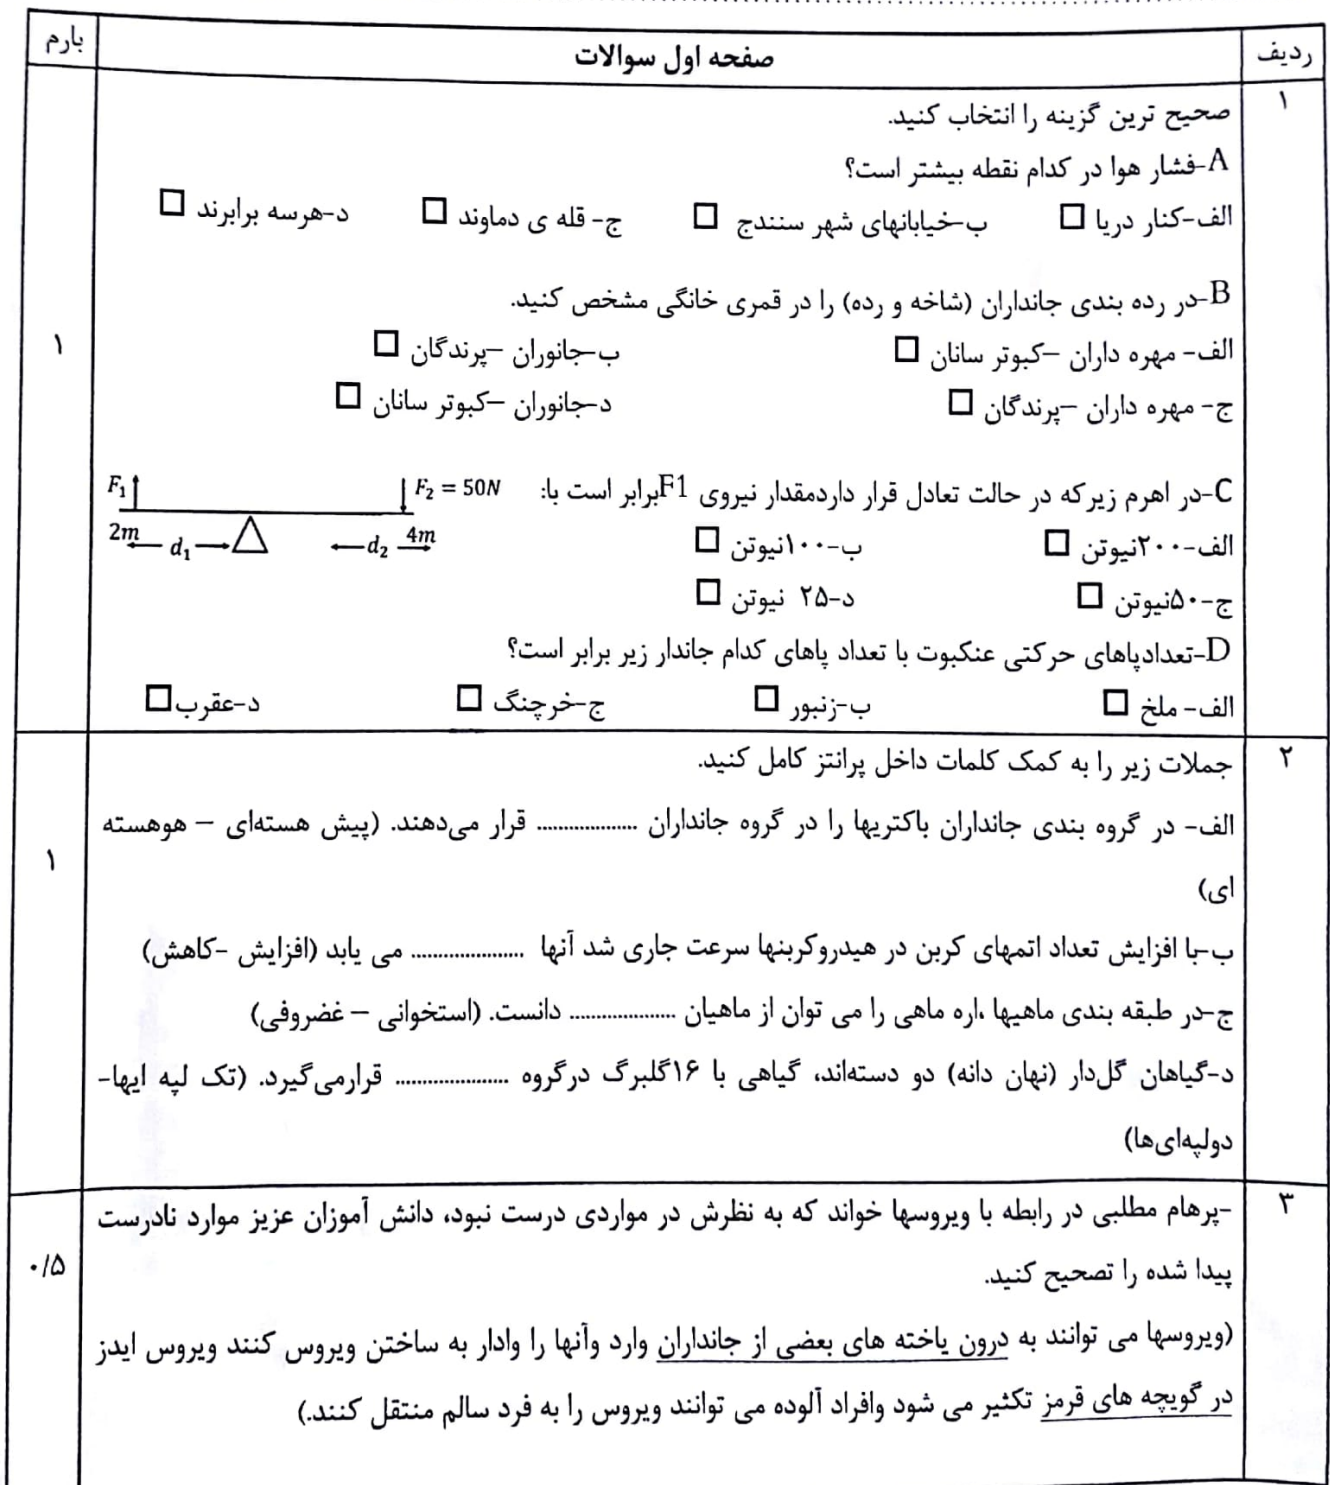 ردیف
صفحه اول سوالات
بارم
۱
صحیح ترین گزینه را انتخاب کنید.
A-فشار هوا در کدام نقطه بیشتر است؟
الف-کنار دریا □ ب-خیابانهای شهر سنندج □ ج- قله ی دماوند □ د-هرسه برابرند □
B-در رده بندی جانداران (شاخه و رده) را در قمری خانگی مشخص کنید.
الف- مهره داران –کبوتر سانان □ ب-جانوران –پرندگان □
ج- مهره داران –پرندگان □ د-جانوران –کبوتر سانان □
۱
C-در اهرم زیرکه در حالت تعادل قرار داردمقدار نیروی F1برابر است با:
F₁ F₂ = 50N
2m d₁ d₂ 4m
الف-۲۰۰نیوتن □ ب-۱۰۰نیوتن □
ج-۵۰نیوتن □ د-۲۵ نیوتن □
D-تعدادپاهای حرکتی عنکبوت با تعداد پاهای کدام جاندار زیر برابر است؟
الف- ملخ □ ب-زنبور □ ج-خرچنگ □ د-عقرب□
۲
جملات زیر را به کمک کلمات داخل پرانتز کامل کنید.
الف- در گروه بندی جانداران باکتریها را در گروه جانداران .................... قرار می‌دهند. (پیش هسته‌ای – هوهسته
ای)
۱
ب-با افزایش تعداد اتمهای کربن در هیدروکربنها سرعت جاری شد آنها ..................... می یابد (افزایش -کاهش)
ج-در طبقه بندی ماهیها ،اره ماهی را می توان از ماهیان .................... دانست. (استخوانی – غضروفی)
د-گیاهان گل‌دار (نهان دانه) دو دسته‌اند، گیاهی با ۱۶گلبرگ درگروه ..................... قرارمی‌گیرد. (تک لپه ایها-
دولپه‌ای‌ها)
۳
-پرهام مطلبی در رابطه با ویروسها خواند که به نظرش در مواردی درست نبود، دانش آموزان عزیز موارد نادرست
پیدا شده را تصحیح کنید.
۰/۵
(ویروسها می توانند به درون یاخته های بعضی از جانداران وارد وآنها را وادار به ساختن ویروس کنند ویروس ایدز
در گویچه های قرمز تکثیر می شود وافراد آلوده می توانند ویروس را به فرد سالم منتقل کنند.)